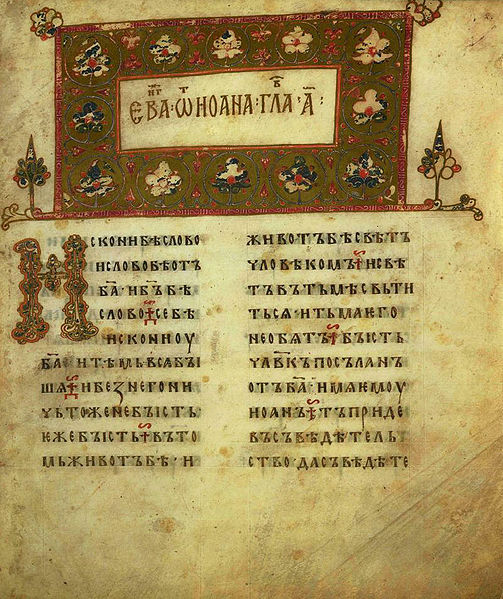 ЕВАⷢ҇ · Ѿ ИОАНА · ГЛАⷡ · А҃ :
ИСКОНИБѢСЛОВО
ИСЛОВОБѢОТЪ
Б҃А · ИБ҃ЪБѢ
СЛОВО · СЕБѢ
ИСКОНИОУ
Б҃А · ИТѢМЬВЬСАБЪІ
ШѦ · ИБЕЗНЕГОНИ
ЧЬТОЖЕНЕБЪІСТЬ ·
ѤЖЕБЪІСТЬ · ВЪТО
МЬЖИВОТЪБѢ · И
ЖИВОТЪБѢСВѢТЪ
ЧЛОВѢКОМЪ · ИСВѢ
ТЪВЪТЬМѢСВЬТИ
ТЬСѦ · ИТЬМАѤГО
НЕОБѦТЪ · БЪІСТЬ
ЧЛ҃ВКЪПОСЪЛАНЪ
ОТЪБ҃А · ИМѦѤМОУ
ИОАНЪ · ТЪПРИДЕ
ВЪСЪВѢДѢТЕЛЬ
СТВО · ДАСЪВѢДѢТЕ